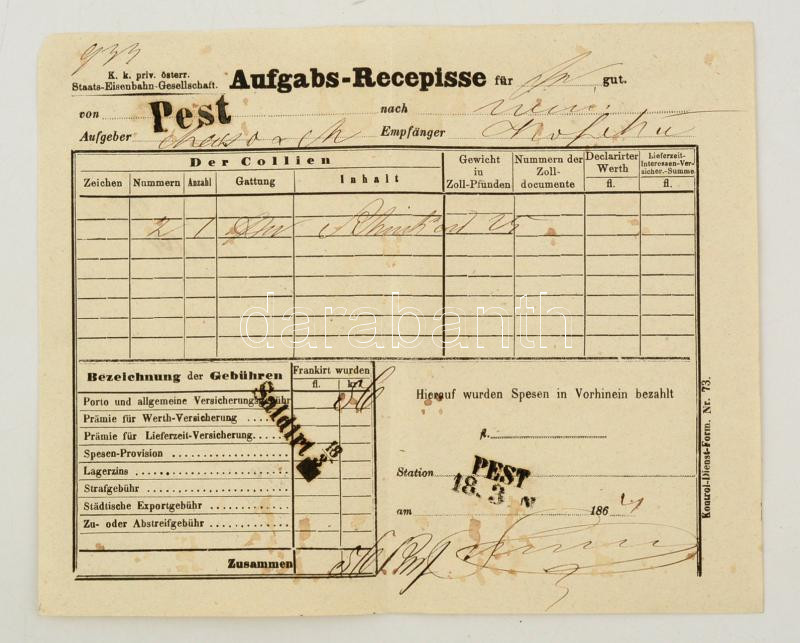 933
K. k. priv. österr.
Staats-Eisenbahn-Gesellschaft.
Aufgabs-Recepisse für gut.
von Pest nach
Aufgeber Empfänger
Der Collien
Gewicht in Zoll-Pfunden
Nummern der Zoll-documente
Declarirter Werth
fl.
Lieferzeit-Interessen-Ver-sicher.-Summe
fl.
Zeichen Nummern Anzahl Gattung Inhalt
2 1
darabanth
Bezeichnung der Gebühren Frankirt wurden
fl. kr.
Porto und allgemeine Versicherungsgebühr
Prämie für Werth-Versicherung
Prämie für Lieferzeit-Versicherung
Spesen-Provision
Lagerzins
Strafgebühr
Städtische Exportgebühr
Zu- oder Abstreifgebühr
Zusammen
Saldirt
18/3
Hierauf wurden Spesen in Vorhinein bezahlt
fl.
Station PEST
18. 3
am 1864
Kontrol-Dienst-Form. Nr. 73.